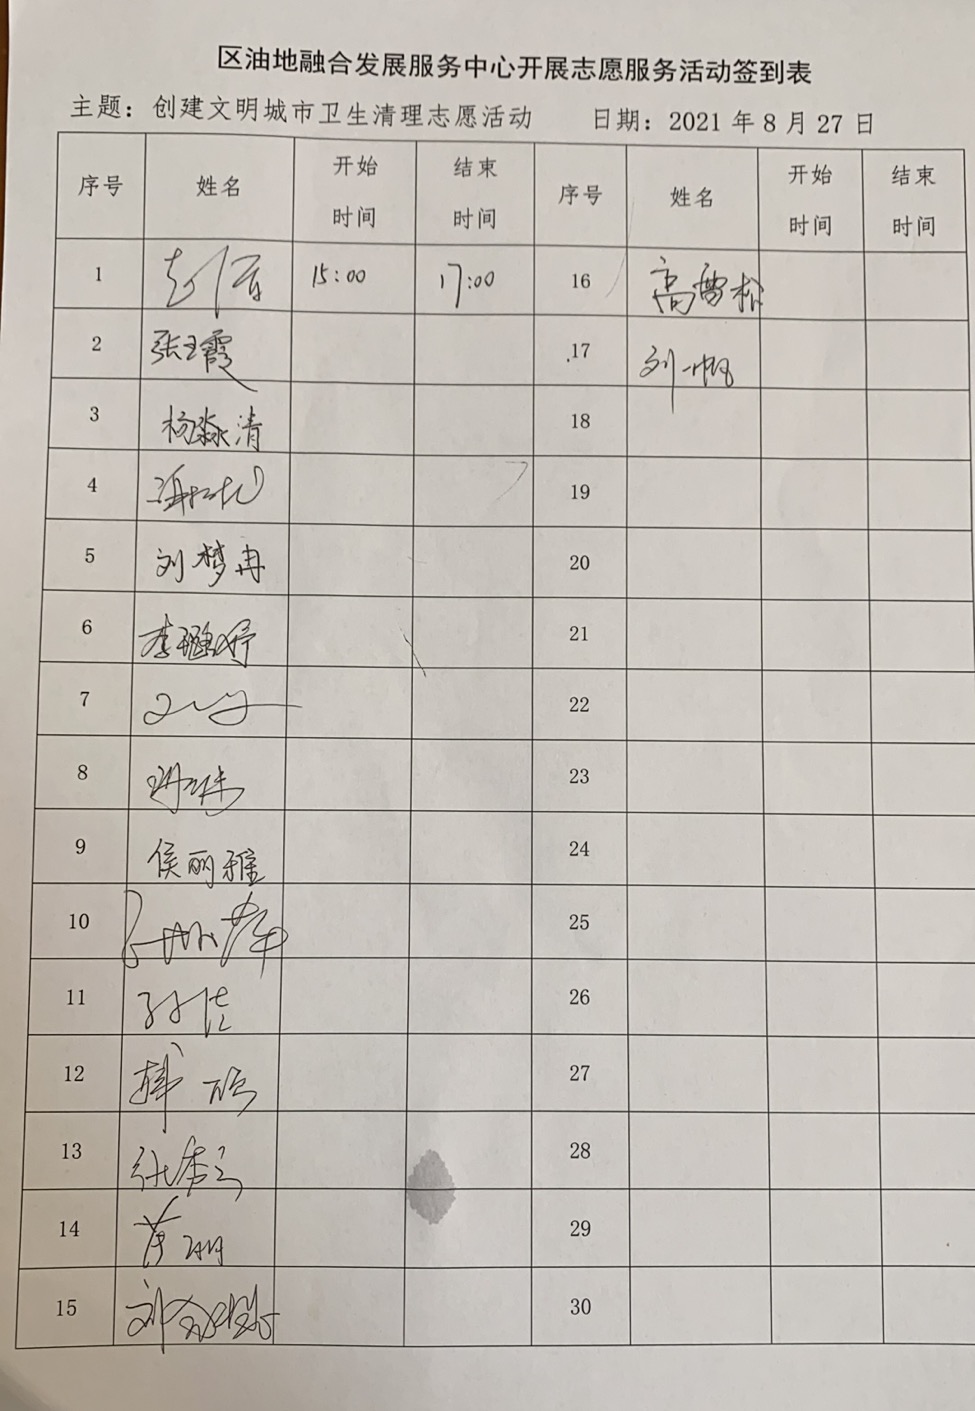 区油地融合发展服务中心开展志愿服务活动签到表
主题：创建文明城市卫生清理志愿活动 日期：2021 年 8 月 27 日
序号 姓名 开始时间 结束时间 序号 姓名 开始时间 结束时间
1 15:00 17:00 16 高雪松
2 张玉霞 17 刘一帆
3 杨淼清 18
4 19
5 刘梦冉 20
6 21
7 22
8 23
9 侯丽雅 24
10 25
11 孙佳 26
12 韩硕 27
13 张秀云 28
14 29
15 30